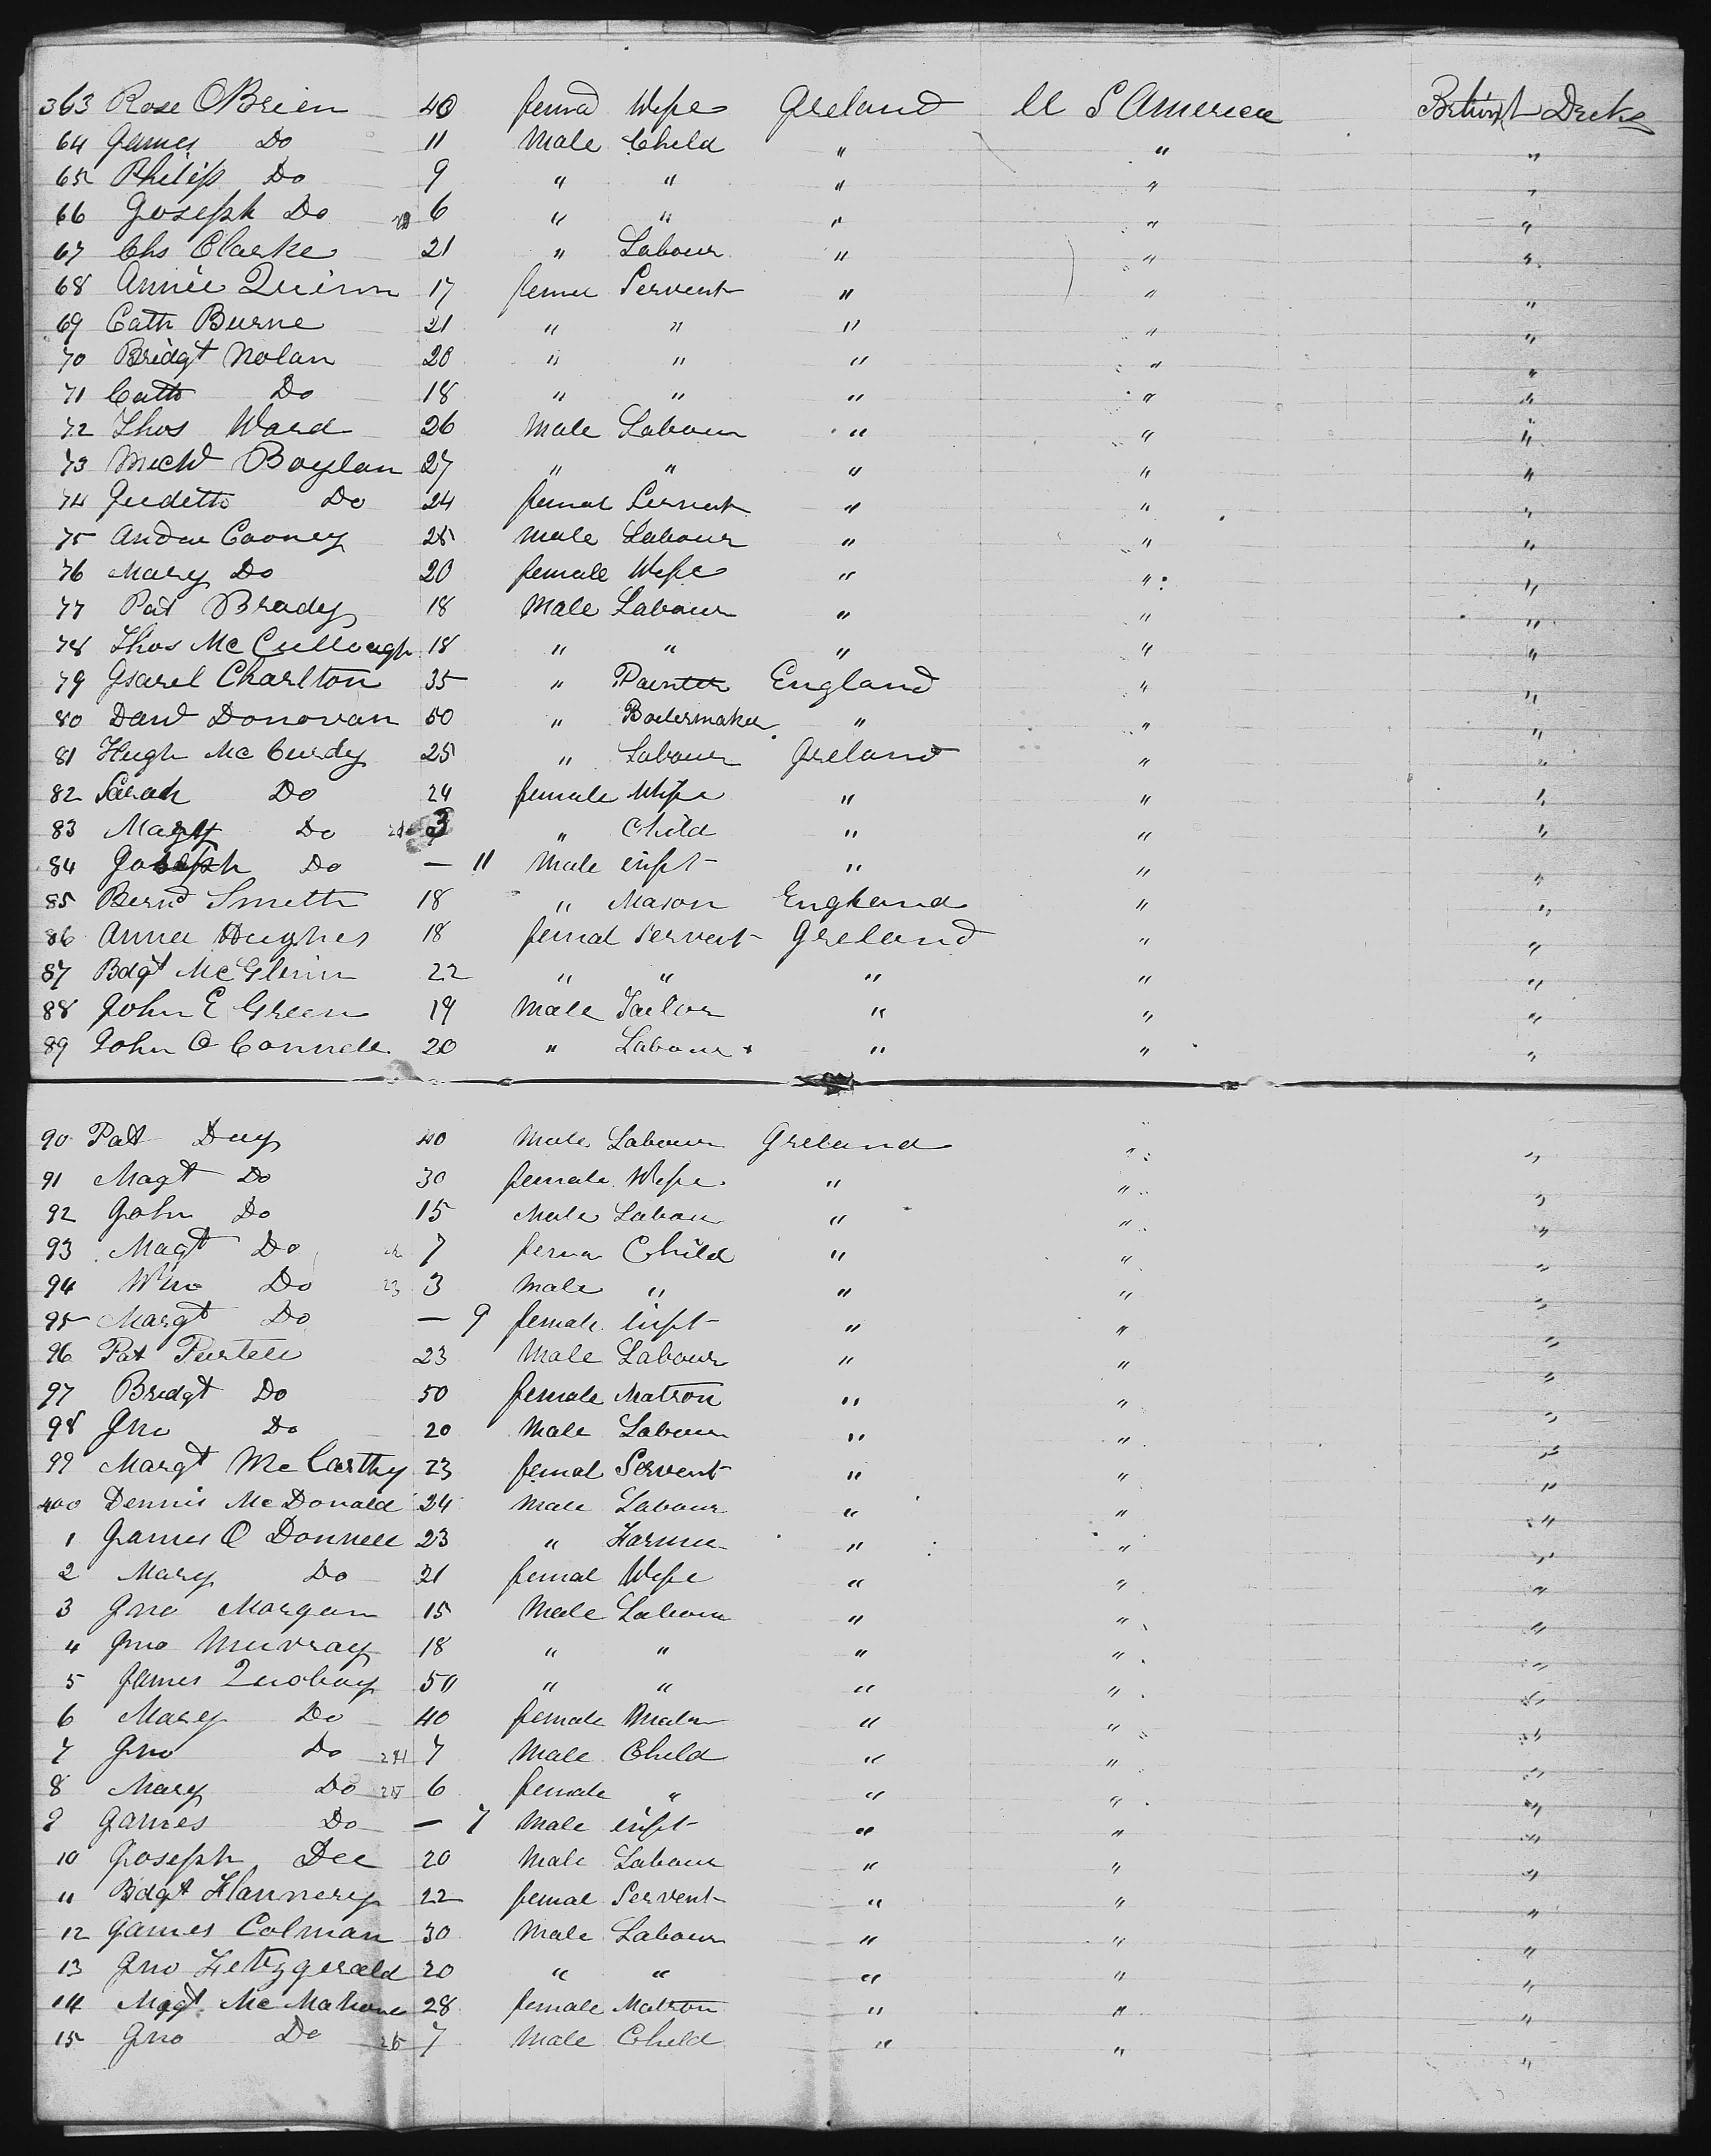 363 Rose O Brien 40 femal Wife Ireland U S America Betwixt Decks
64 James Do 11 Male Child " " "
65 Philip Do 9 " " " " "
66 Joseph Do 6 " " " " "
67 Chs Clarke 21 " Labour " " "
68 Annie Quinn 17 femal Servent " " "
69 Cath Burne 21 " " " " "
70 Bridgt Nolan 20 " " " " "
71 Cath Do 18 " " " " "
72 Thos Ward 26 Male Labour " " "
73 Michl Boylan 27 " " " " "
74 Judeth Do 24 femal Servent " " "
75 Andw Cooney 25 Male Labour " " "
76 Mary Do 20 female Wife " " "
77 Pat Brady 18 Male Labour " " "
78 Thos Mc Cullough 18 " " " " "
79 Isarel Charlton 35 " Painter England " "
80 Danl Donovan 50 " Boilermaker " " "
81 Hugh Mc Curdy 25 " Labour Ireland " "
82 Sarah Do 24 female Wife " " "
83 Do 3 " Child " " "
84 Joseph Do — 11 Male inft " " "
85 Bernd Smith 18 " Mason England " "
86 Annie Hughes 18 femal Servent Ireland " "
87 Bdgt Mc Glinn 22 " " " " "
88 John E Green 19 Male Tailor " " "
89 John O Connell 20 " Labour " " "
90 Pat Day 40 Male Labour Ireland " "
91 Magt Do 30 female Wife " " "
92 John Do 15 Male Labour " " "
93 Magt Do 7 femal Child " " "
94 Wm Do 23 3 Male " " " "
95 Margt Do — 9 female inft " " "
96 Pat Purtell 23 Male Labour " " "
97 Bridgt Do 50 female Matron " " "
98 Jno Do 20 Male Labour " " "
99 Margt Mc Carthy 23 femal Servent " " "
400 Dennis Mc Donald 24 Male Labour " " "
1 James O Donnell 23 " Farmer " " "
2 Mary Do 21 femal Wife " " "
3 Jno Morgan 15 Male Labour " " "
4 Jno Murray 18 " " " " "
5 James 50 " " " " "
6 Mary Do 40 female Matron " " "
7 Jno Do 24 7 Male Child " " "
8 Mary Do 25 6 female " " " "
9 James Do — 7 Male inft " " "
10 Joseph Dee 20 Male Labour " " "
11 Bdgt Flannery 22 femal Servent " " "
12 James Colman 30 Male Labour " " "
13 Jno Fetzgerald 20 " " " " "
14 Magt Mc Mahon 28 female Matron " " "
15 Jno Do 26 7 Male Child " " "